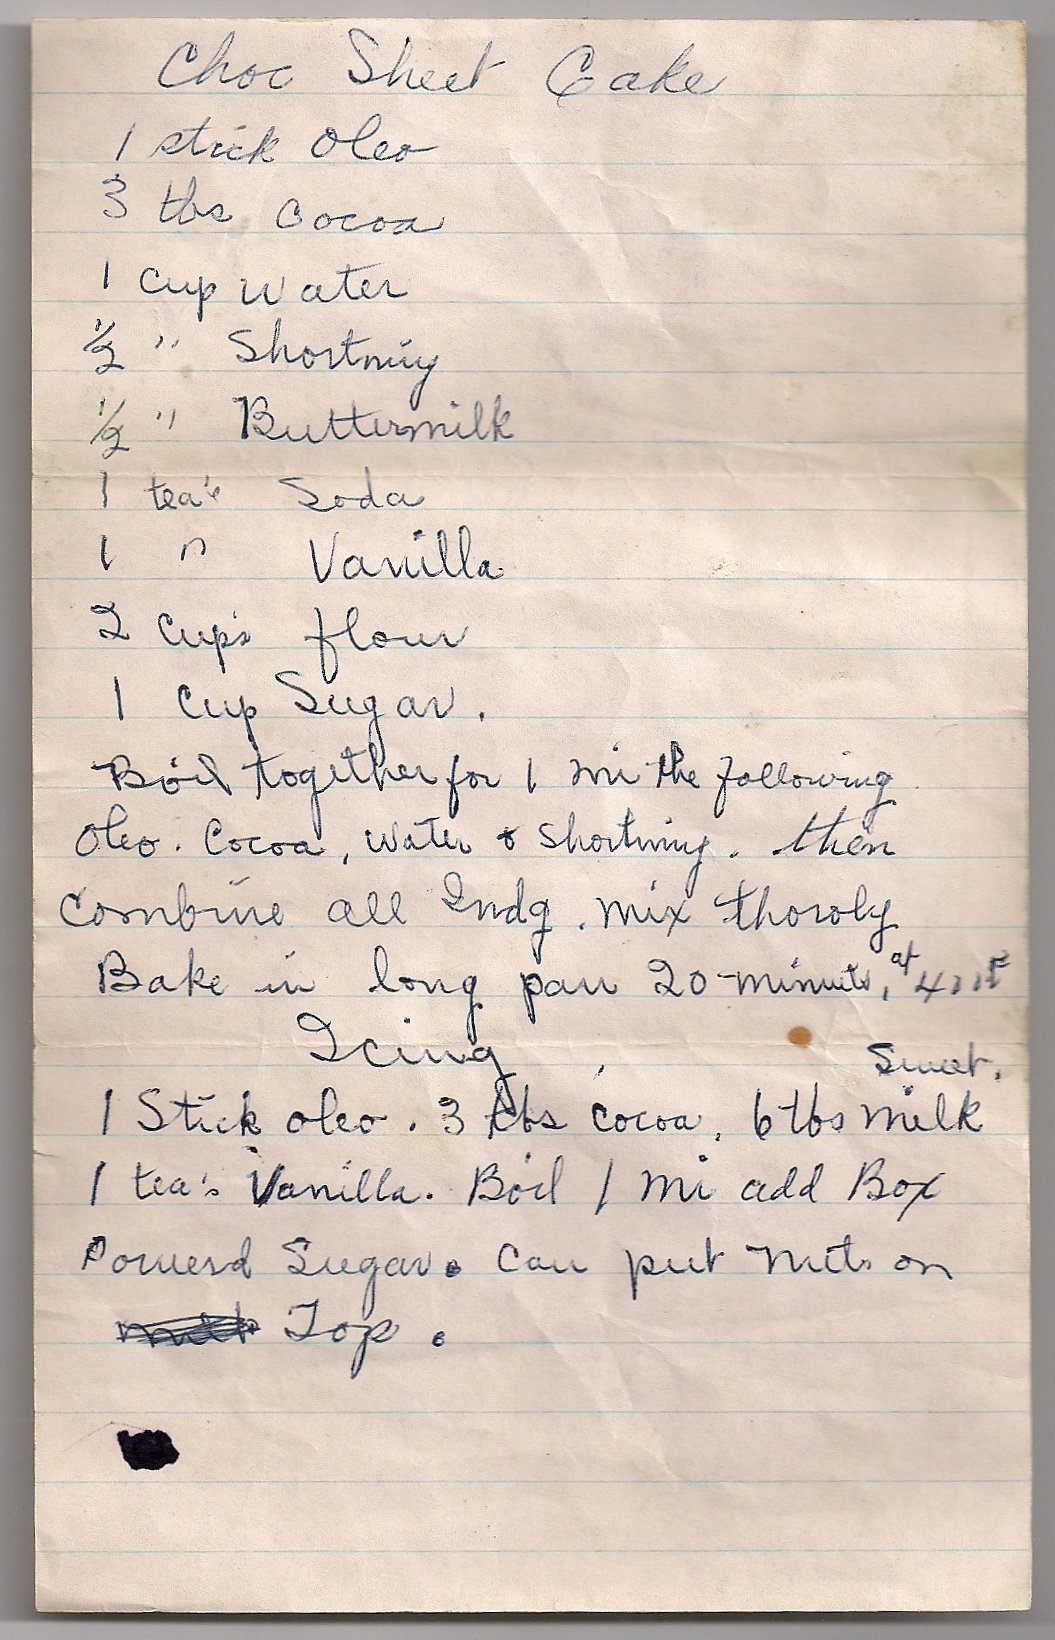 Choc Sheet Cake
1 stick oleo
3 tbs Cocoa
1 cup water
1/2 " Shortning
1/2 " Buttermilk
1 tea's Soda
1 " Vanilla
2 cup's flour
1 cup Sugar.
Boil together for 1 mi the following
oleo. Cocoa, water & shortning. then
Combine all Indg. mix thoroly
Bake in long pan 20 minuets, at
Icing
Sweet.
1 Stick oleo. 3 tbs cocoa, 6 tbs milk
1 tea's Vanilla. Boil 1 mi add Box
Powerd Sugar. can put nuts on
Top.